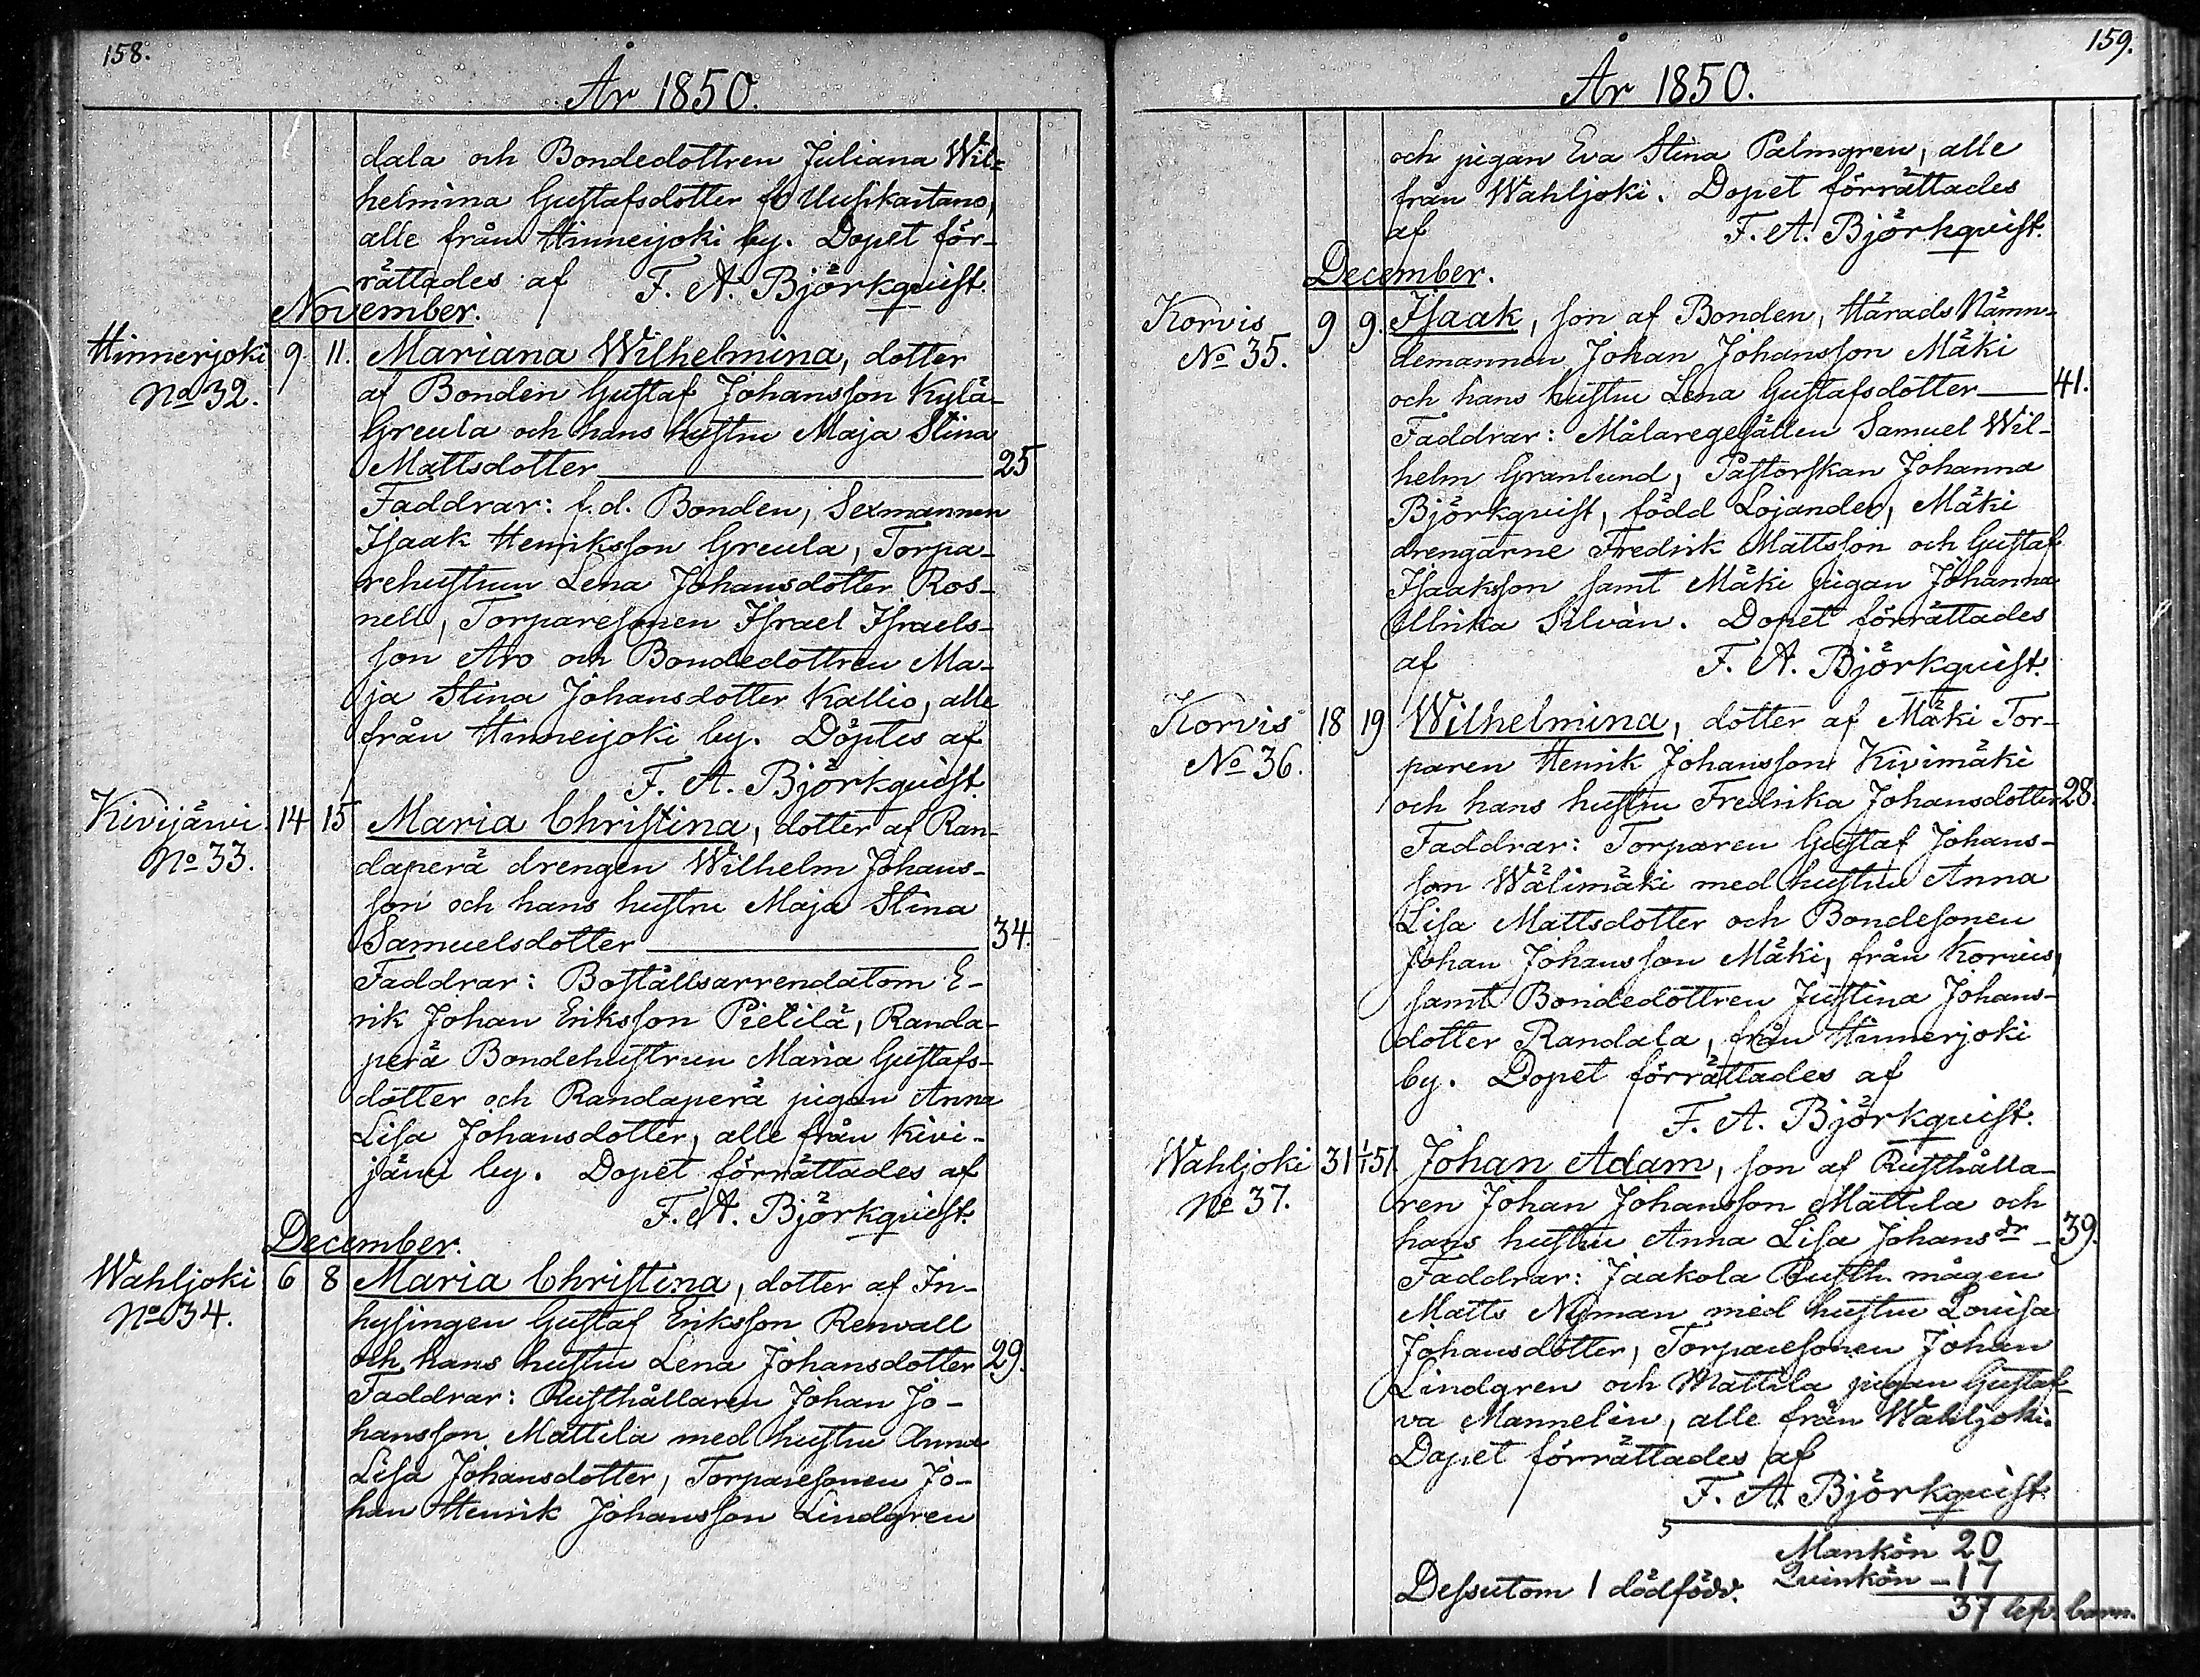 158.
År 1850.
dala och Bondedottren Juliana Wil=
helmina Gustafsdotter fr Uusikartano,
alle från Hinnerjoki by. Dopet för-
rättades af F. A. Björkquist.
November.
Hinnerjoki 9 11. Mariana Wilhelmina, dotter
No 32. af Bonden Gustaf Johansson Kylä-
Greula och hans hustru Maja Stina
Mattsdotter 25
Faddrar: f.d. Bonden, Sexmannen
Isaak Henriksson Greula, Torpa-
rehustrun Lena Johansdotter Ros-
nell, Torparesonen Israel Israels-
son Aro och Bondedottren Ma-
ja Stina Johansdotter Kallio, alle
från Hinnerjoki by. Döptes af
F. A. Björkquist.
Kivijärvi 14 15 Maria Christina, dotter af Ran-
No 33. daperä drengen Wilhelm Johans-
son och hans hustru Maja Stina
Samuelsdotter 34.
Faddrar: Boställsarrendatorn E-
rik Johan Eriksson Pietilä, Randa-
perä Bondehustrun Maria Gustafs-
dotter och Randaperä pigan Anna
Lisa Johansdotter, alle från Kivi-
järvi by. Dopet förrättades af
F. A. Björkquist.
December.
Wahljoki 6 8 Maria Christina, dotter af In-
No 34. hysingen Gustaf Eriksson Renvall
och hans hustru Lena Johansdotter 29.
Faddrar: Rusthållaren Johan Jo-
hansson Mattila med hustru Anna
Lisa Johansdotter, Torparesonen Jo-
han Henrik Johansson Lindgren
159.
År 1850.
och pigan Eva Stina Palmgren, alle
från Wahljoki. Dopet förrättades
af F. A. Björkquist.
December.
Korvis 9 9. Isaak, son af Bonden, Härads Nämn-
No 35. demannen Johan Johansson Mäki
och hans hustru Lena Gustafsdotter 41.
Faddrar: Målaregesällen Samuel Wil-
helm Granlund, Pastorskan Johanna
Björkquist, född Lojander, Mäki
drengarne Fredrik Mattsson och Gustaf
Isaaksson samt Mäki pigan Johanna
Ulrika Silvàn. Dopet förrättades
af F. A. Björkquist.
Korvis 18 19 Wilhelmina, dotter af Mäki Tor-
No 36. paren Henrik Johansson Kivimäki
och hans hustru Fredrika Johansdotter 28.
Faddrar: Torparen Gustaf Johans-
son Wälimäki med hustru Anna
Lisa Mattsdotter och Bondesonen
Johan Johansson Mäki, från Korvis,
samt Bondedottren Justina Johans-
dotter Randala, från Hinnerjoki
by. Dopet förrättades af
F. A. Björkquist.
Wahljoki 31 1/1 51. Johan Adam, son af Rusthålla-
No 37. ren Johan Johansson Mattila och
hans hustru Anna Lisa Johansdr 39.
Faddrar: Jaakola Rusth. mågen
Matts Nyman med hustru Lovisa
Johansdotter, Torparesonen Johan
Lindgren och Mattila pigan Gustaf-
va Mannelin, alle från Wahljoki.
Dopet förrättades af
F. A. Björkquist.
Mankön 20
Qvinkön – 17
Dessutom 1 dödfödd.
37 lefv. barn.